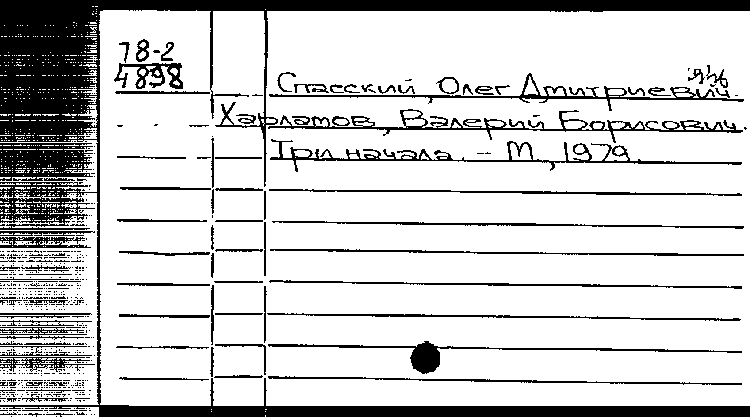 78-2
4898
Спасский, Олег Дмитриевич.
Харламов, Валерий Борисович.
Три начала. - М, 1979.